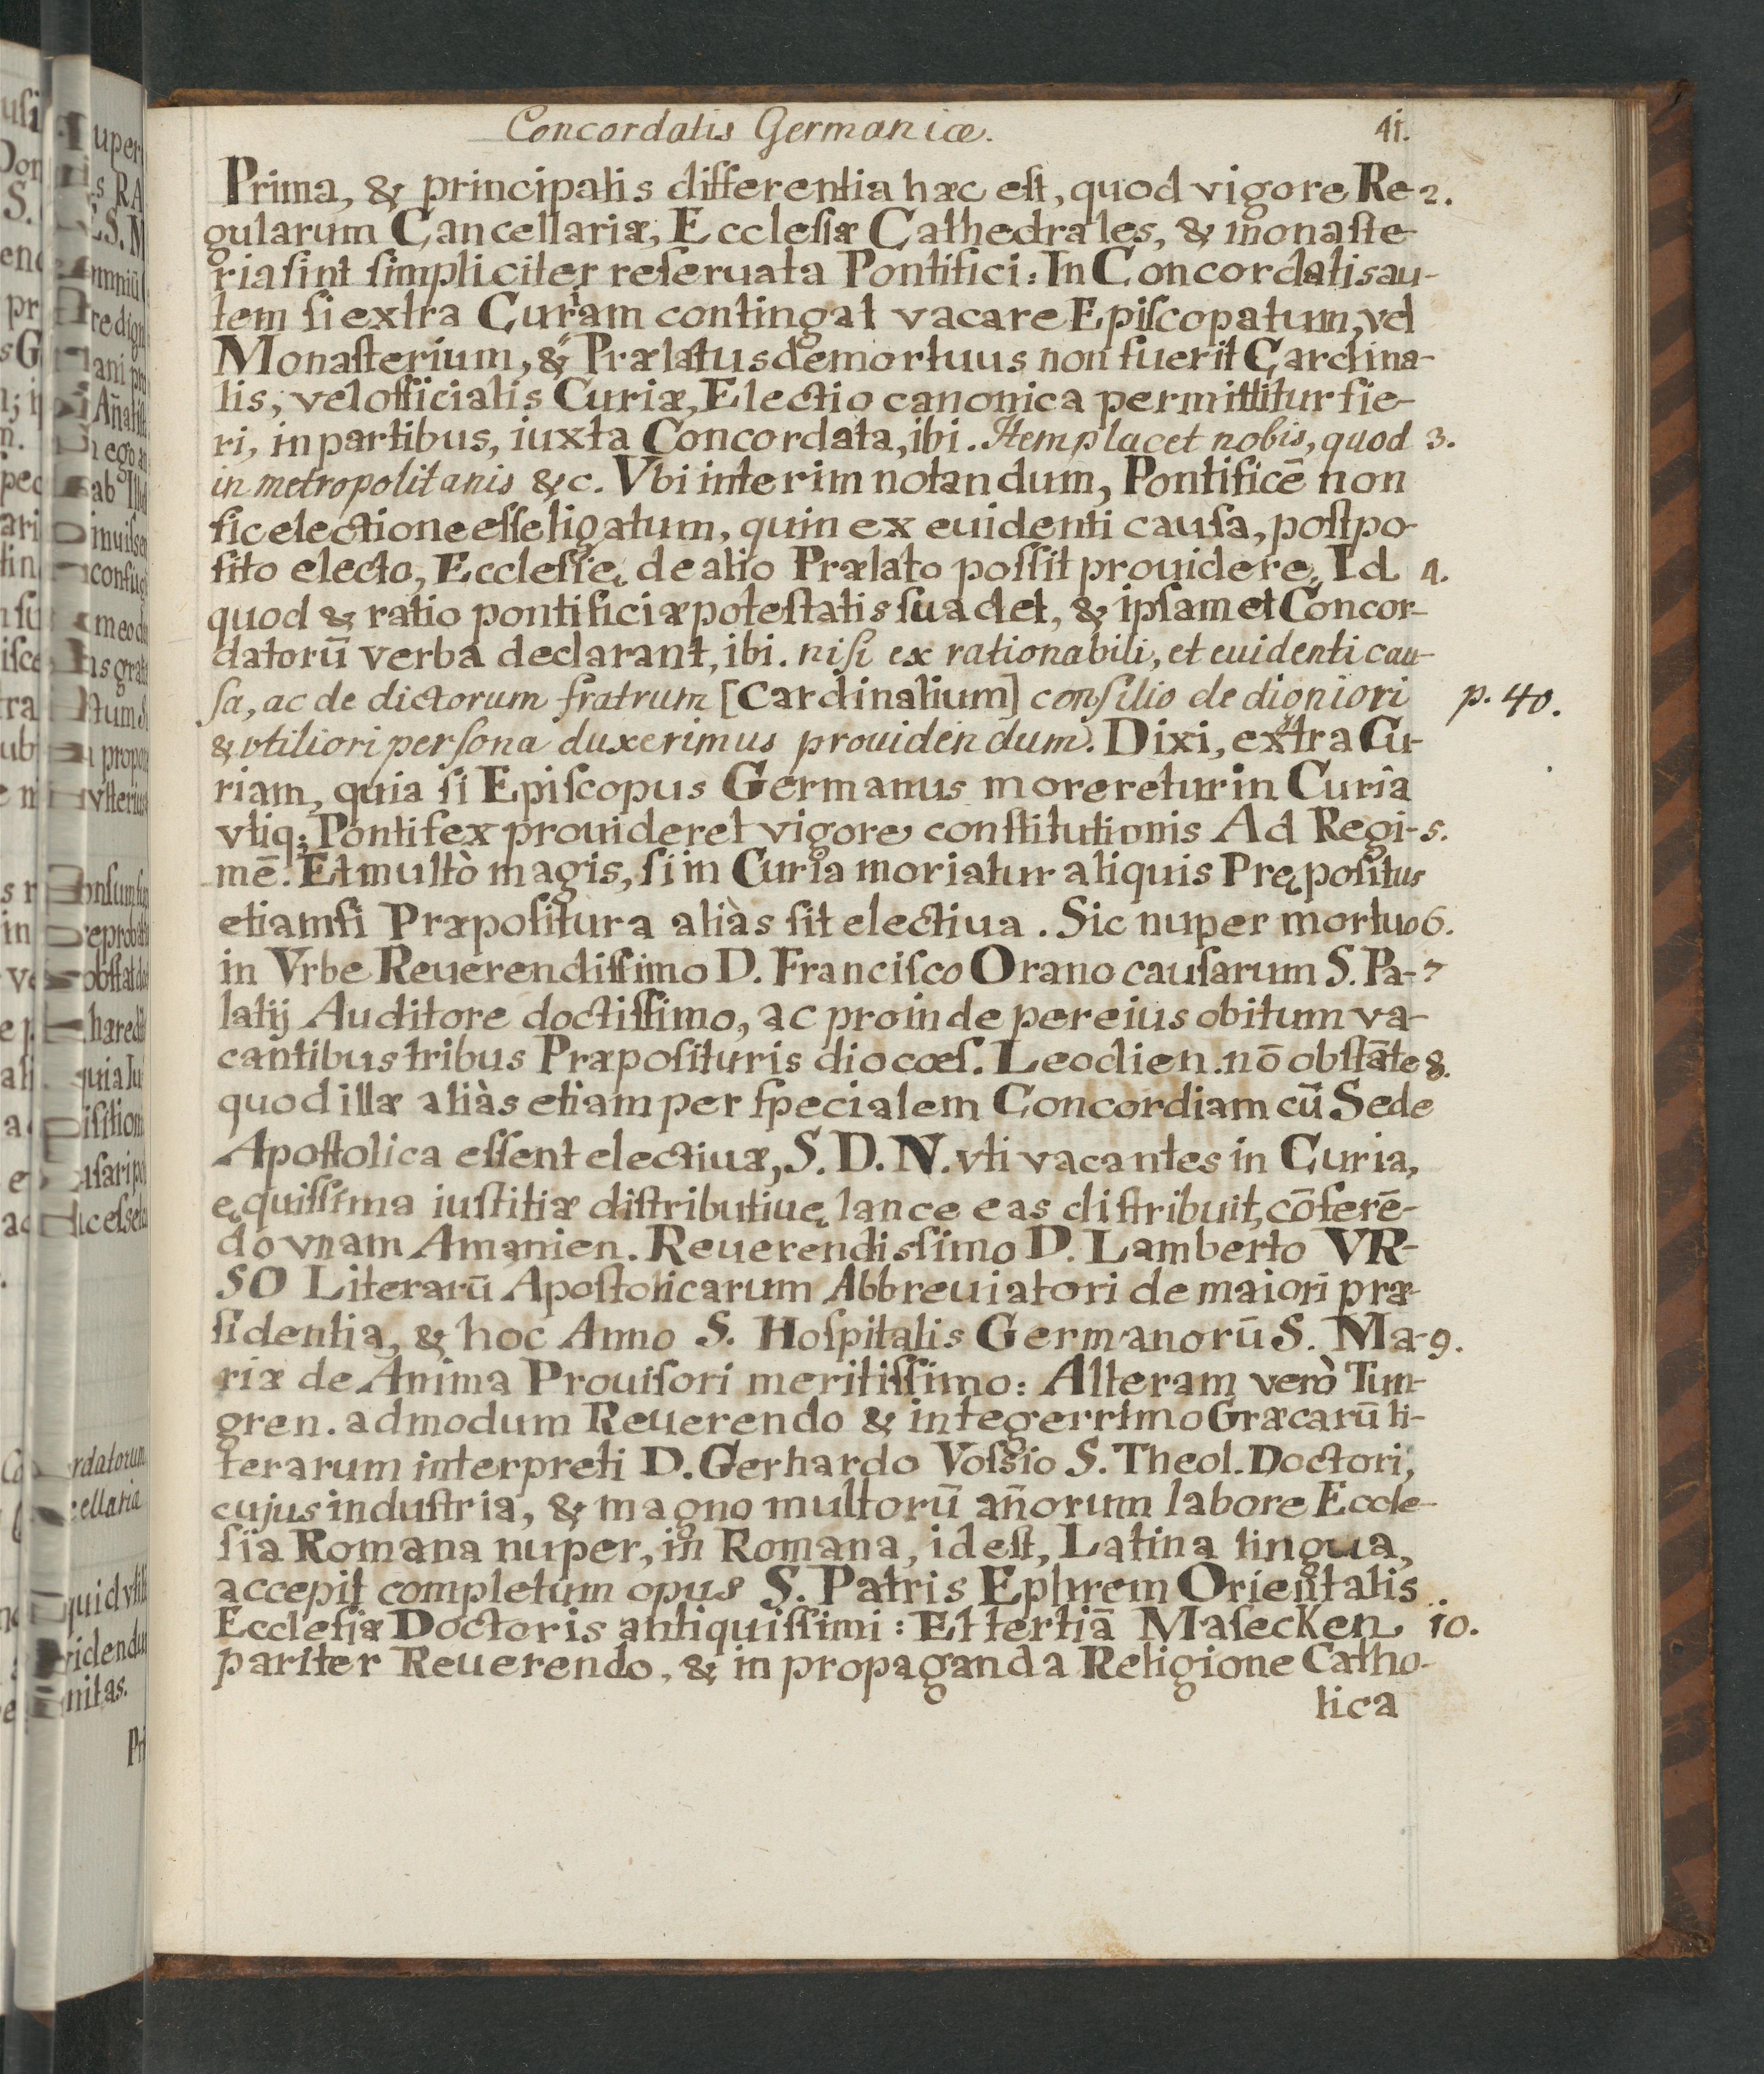 Concordatis Germaniæ. 41.
Prima, & principalis differentia hæc eſt, quod vigore Re- 2.
gularum Cancellariæ, Eccleſiæ Cathedrales, & monaſte-
ria ſint ſimpliciter reſeruata Pontifici: In Concordatis au-
tem ſi extra Curiam contingat vacare Epiſcopatum, vel
Monaſterium, & Prælatus demortuus non fuerit Cardina-
lis, vel officialis Curiæ, Electio canonica permittitur fie-
ri, in partibus, iuxta Concordata, ibi. Item placet nobis, quod 3.
in metropolitanis &c. Vbi interim notandum, Pontificē non
ſic electione eſſe ligatum, quin ex euidenti cauſa, poſtpo-
ſito electo, Eccleſię de alio Prælato poſſit prouidere. Id 4.
quod & ratio pontificiæ poteſtatis ſuadet, & ipſamet Concor-
datorū verba declarant, ibi. niſi ex rationabili, et euidenti cau-
ſa, ac de dictorum fratrum [Cardinalium] conſilio de digniori p. 40.
& vtiliori perſona duxerimus prouidendum. Dixi, extra Cu-
riam, quia ſi Epiſcopus Germanus moreretur in Curia
vtiq; Pontifex prouideret vigore conſtitutionis Ad Regi- 5.
mē. Et multò magis, ſi in Curia moriatur aliquis Prępoſitus
etiamſi Præpoſitura aliàs ſit electiua. Sic nuper mortuo 6.
in Vrbe Reuerendiſſimo D. Franciſco Orano cauſarum S. Pa- 7
latij Auditore doctiſſimo, ac proinde per eius obitum va-
cantibus tribus Præpoſituris diocœſ. Leodien. nō obſtāte 8.
quod illæ aliàs etiam per ſpecialem Concordiam cū Sede
Apoſtolica eſſent electiuæ, S. D. N. vti vacantes in Curia,
ęquiſſima iuſtitiæ diſtributiuę lance eas diſtribuit, cōferē-
do vnam Amanien. Reuerendisſimo D. Lamberto VR-
SO Literarū Apoſtolicarum Abbreuiatori de maiori præ-
ſidentia, & hoc Anno S. Hoſpitalis Germanorū S. Ma- 9.
riæ de Anima Prouiſori meritiſſimo: Alteram verò Tun-
gren. admodum Reuerendo & integerrimo Græcarū li-
terarum interpreti D. Gerhardo Voſsio S. Theol. Doctori,
cujus induſtria, & magno multorū an̄orum labore Eccle-
ſia Romana nuper, in Romana, id eſt, Latina lingua,
accepit completum opus S. Patris Ephrem Orientalis
Eccleſiæ Doctoris antiquiſſimi: Et tertiā Maſecken. 10.
pariter Reuerendo, & in propaganda Religione Catho-
lica